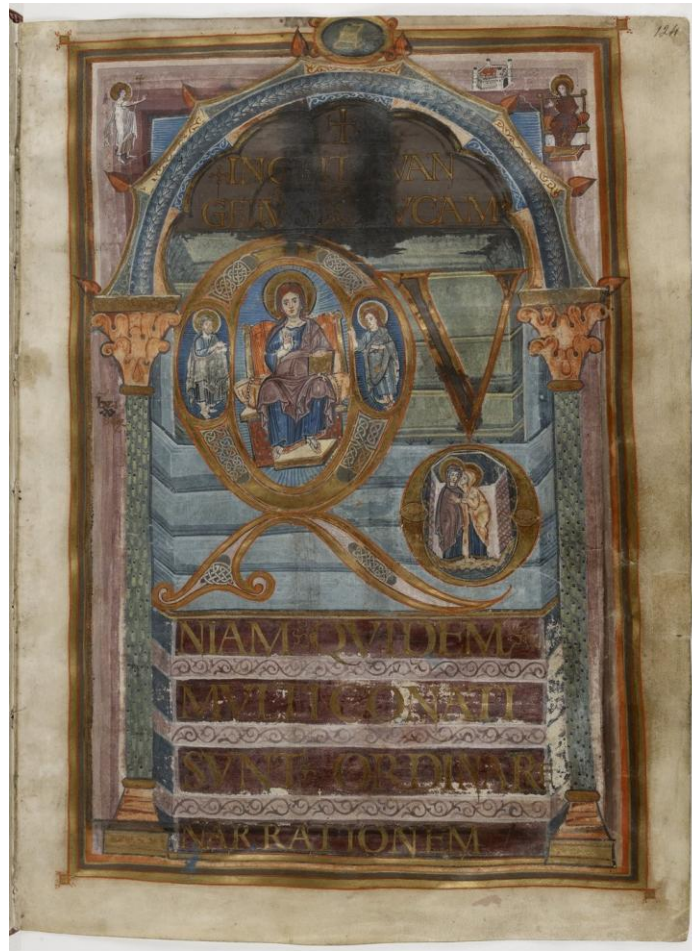 124
INCIPIT EVAN
LVCAM
QV
O
NIAM QVIDEM
MVLTI CONATI
SVNT ORDINAR
NARRATIONEM